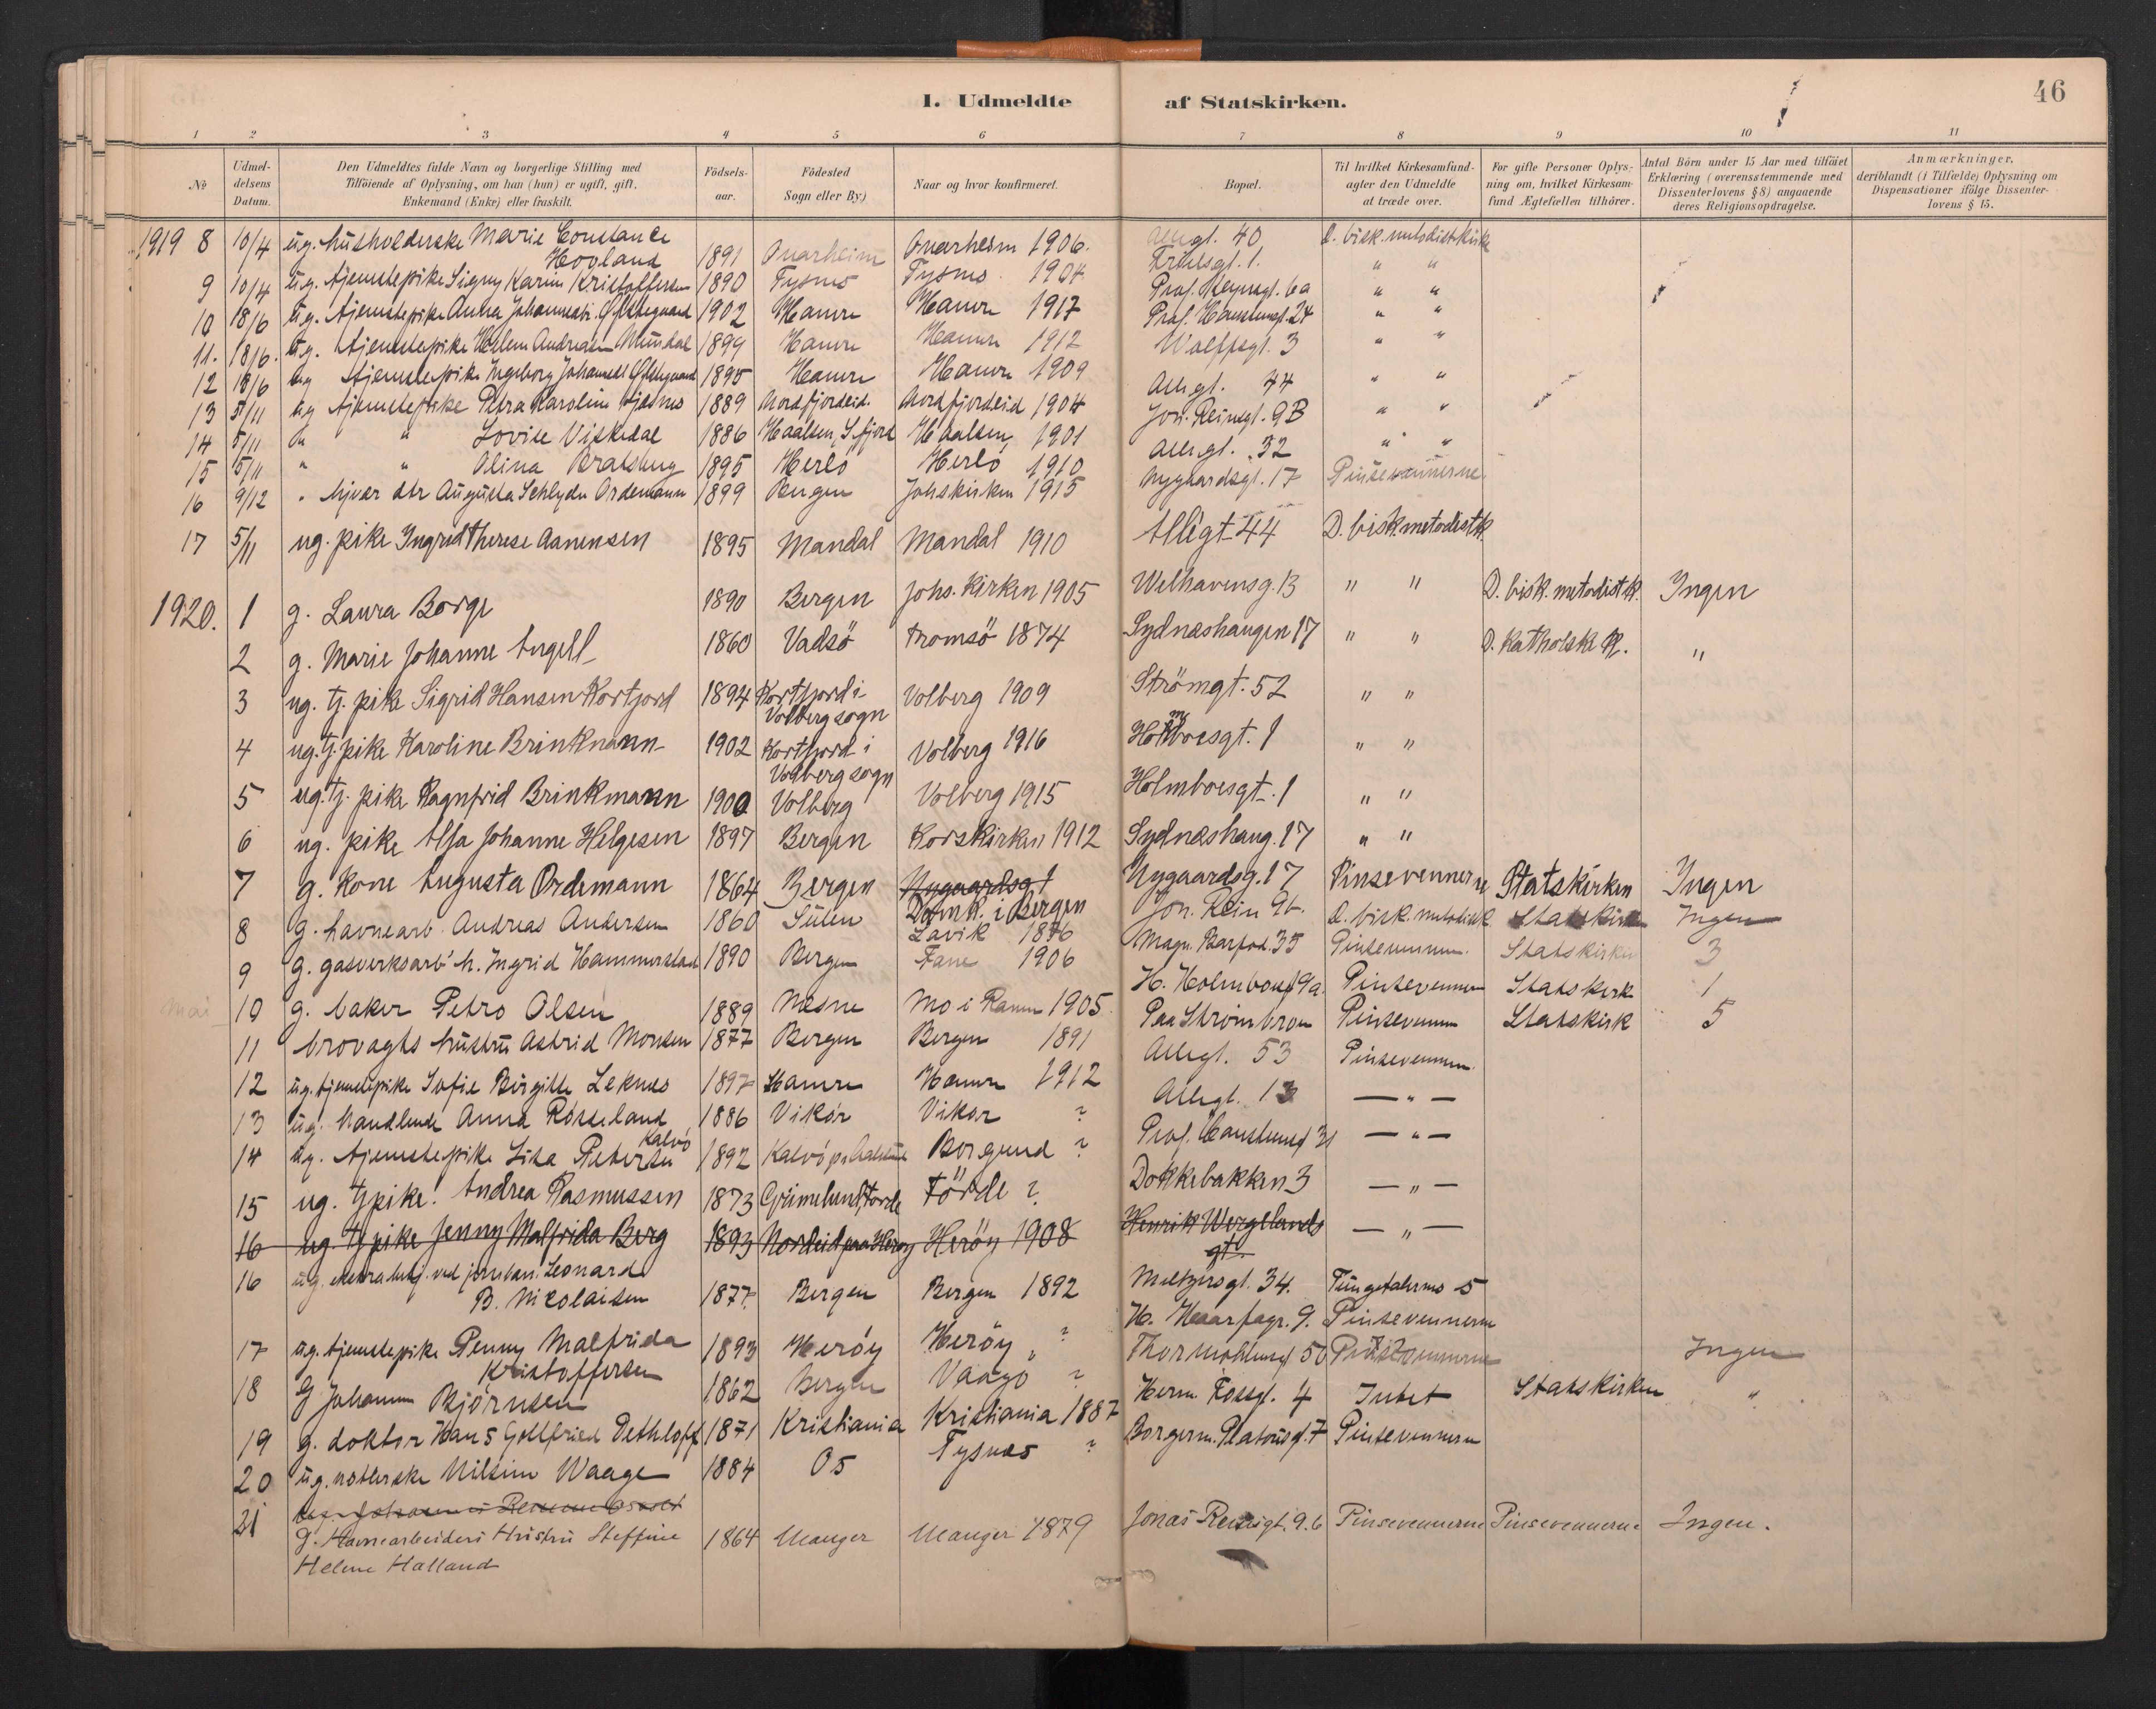 I. Udmeldte af Statskirken.
46
1 2 3 4 5 6 7 8 9 10 11
No
Udmeldelsens Datum.
Den Udmeldtes fulde Navn og borgerlige Stilling med
Tilföiende af Oplysning, om han (hun) er ugift, gift.
Enkemand (Enke) eller fraskilt.
Födselsaar.
Födested
Sogn eller By)
Naar og hvor konfirmeret.
Bopæl.
Til hvilket Kirkesamfund-
agter den Udmeldte
at træde over.
For gifte Personer Oplys-
ning om, hvilket Kirkesam-
fund Ægtefællen tilhörer.
Antal Börn under 15 Aar med tilföiet
Erklæring (overensstemmende med
Dissenterlovens § 8) angaaende
deres Religionsopdragelse.
Anmærkninger,
deriblandt (i Tilfælde) Oplysning om
Dispensationer ifölge Dissenter-
lovens § 15.
1919 8 10/4 ug. husholderske Marie Constance
Hovland 1891 Onarheim Onarheim 1906. Allegt. 40 D. bisk. metodistkirke
9 10/4 ug. tjenestepike Signy Karin Kristoffersen 1890 Tysnes Tysnes 1904 1. " "
10 18/6 ug. tjenestepike Anna Johannesdr. 1902 Hamre Hamre 1917 Prof. 6a " "
11. 18/6. ug. tjenestepike Andreasen Mundal 1899 Hamre Hamre 1912 Prof. Hansteensgt. 24 " "
12 18/6 ug tjenestepike Ingeborg 1895 Hamre Hamre 1909 Wolffsgt. 3 " "
13 5/11 ug tjenestepike Petra Karoline 1889 Nordfjordeid. Nordfjordeid 1904 Allegt. 44 " "
14 5/11 " " Lovise Viskedal 1886 Haalsen, S.fjord Haalsen 1901 Jon. Reinsgt. 9B " "
15 5/11 " " Olina 1895 Herlö Herlö 1910 Allegt. 32 " "
16 9/12 " Augusta Ordemann 1899 Bergen Johskirken 1915 Nygaardsgt. 17 Pinsevennerne
17 5/11 ug. pike Ingrid Therese Aanensen 1895 Mandal Mandal 1910 Allégt 44 D. bisk. metodistk.
1920. 1 g. Laura Borge 1890 Bergen Johs. Kirken 1905 Welhavensg. 13 " " D. bisk. metodist k. Ingen
2 g. Marie Johanne Angell 1860 Vadsö Tromsö 1874 Sydneshaugen 17 " " D. Katholske K. "
3 ug. tj. pike Sigrid Hansen Kortfjord 1894 Kortfjord i
Volberg sogn Volberg 1909 Strömgt. 52 " "
4 ug. tj. pike Karoline Brinkmann 1902 Kortfjord i
Volberg sogn Volberg 1916 Holmboesgt. 1 " "
5 ug. tj. pike Ragnfrid Brinkmann 1900 Volberg Volberg 1915 Holmboesgt. 1 " "
6 ug. pike Johanne Helgesen 1897 Bergen Korskirken 1912 Sydneshaug. 17 " "
7 g. Kone Augusta Ordemann 1864 Bergen Nygaardsgt
Domk. i Bergen Nygaardsg. 17 Pinsevennerne Statskirken Ingen
8 g. havnearb. Andreas Andersen 1860 Sulen Lavik 1876 Jon. Rein 9b. D. bisk. metodistk Statskirken Ingen
9 g. gasverksarb. h. Ingrid Hammerstad 1890 Bergen Fane 1906 Magn. Barfod. 35 Pinsevennern. Statskirken 3
mai 10 g. baker Petro Olsen 1889 Nesne Mo i Ranen 1905. H. Holmboesgt 9a. Pinsevennern Statskirk 1
11 brovagts hustru Astrid Monsen 1877 Bergen Bergen 1891 Paa Strömbroen Pinsevennern Statskirk 5
12 ug. tjenestepike Sofie Birgitte Leknes 1897 Hamre Hamre 1912 Allegt. 53 Pinsevennern.
13 ug. handlende Anna Rosseland 1886 Vikör Vikör ? Allegt. 13 — " —
14 ug. tjenestepike Lisa Petersen Kalvö 1892 Kalvö Borgund ? Prof. Hansteensgt 31 — " —
15 ug. tj pike. Andrea Rasmussen 1873 Förde Förde ? Dokkebakken 3 — " —
16 ug. tj pike Jenny Malfrida Berg 1893 Nordeid paa Heröy Heröy 1908 Henrik Wergelands
gt. — " —
16 ug. ved jernban. Leonard
B. Nikolaisen 1877. Bergen Bergen 1892 Meltzersgt. 34. Tungetalernes 5
17 ug. tjenestepike Penny Malfrida
Kristoffersen 1893 Heröy Heröy ? H. Haarfagr. 9. Pinsevennerne
18 G Johanne Björnsen 1862 Bergen Vaagö ? Thormöhlensgt 50 Pinsevennerne Ingen
19 g. doktor Hans Gottfried Dethloff 1871 Kristiania Kristiania 1887 Herm. Fossgt. 4 Intet Statskirken "
20 ug. Nilsine Waage 1884 Os Tysnes ? Borgerm. Platousgt. 7 Pinsevennern
21 g. Havnearbeiders Hustru Steffine
Helene Halland 1864 Manger Manger 1879 Jonas Reinsgt. 9.b Pinsevennerne Pinsevennerne Ingen.